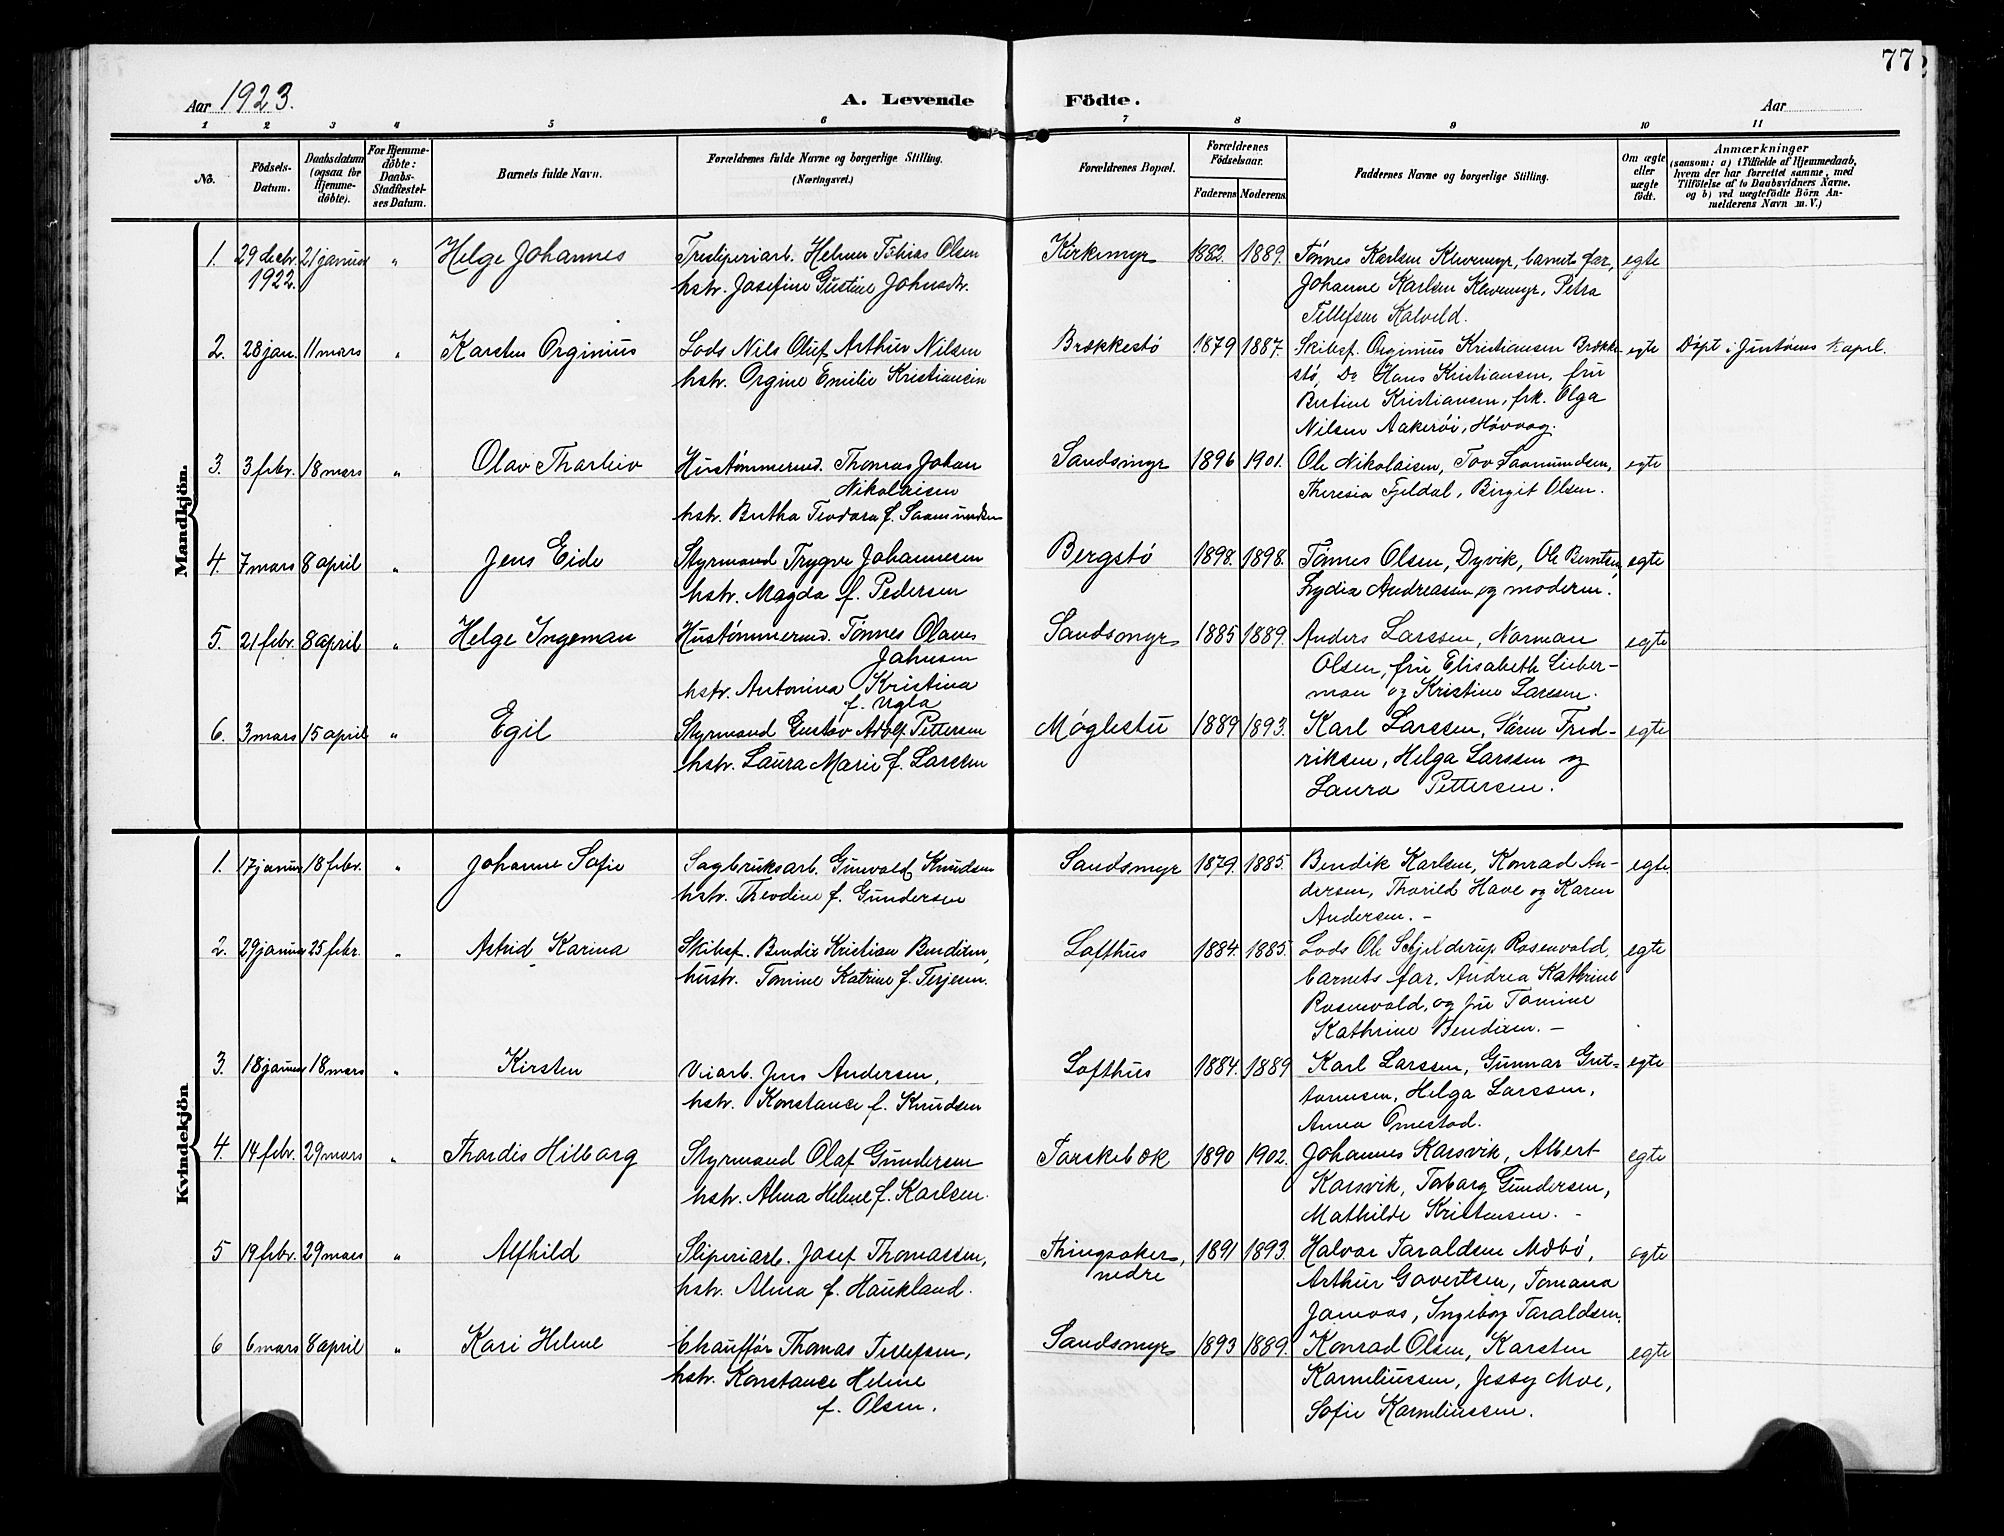 77
Aar 1923. A. Levende Födte. Aar
1 2 3 4 5 6 7 8 9 10 11
No. Födsels-Datum. Daabsdatum (ogsaa for Hjemme-döbte). For Hjemme-döbte: Daabs-Stadfæstel-ses Datum. Barnets fulde Navn. Forældrenes fulde Navne og borgerlige Stilling. (Næringsvei.) Forældrenes Bopæl. Forældrenes Födselsaar. Faderens Moderens Faddernes Navne og borgerlige Stilling. Om ægte eller uægte födt. Anmærkninger (saasom: a) i Tilfælde af Hjemmedaab, hvem der har forrettet samme, med Tilföielse af to Daabsvidners Navne, og b) ved uægtefödte Börn An-melderens Navn m. V.)
Mandkjön.
1. 29 decbr. 21 januar " Helge Johannes Tresliperiarb. Helmer Tobias Olsen Kirkemyr 1882. 1889. Tønnes Karlsen Klevemyr, barnets far, egte
1922. hstr. Josefine Gustine Johnsdtr. Johanne Karlsen Klevemyr, Petra
Tellefsen Kalveld.
2. 28 jan. 11 mars " Karsten Orginius Lods Nils Oluf Arthur Nilsen Brækkestø 1879 1887. Skibsf. Orginius Kristiansen Brække- egte Døpt i Justøens kapel.
hstr. Orgine Emilie Kristiansen stø, Do Hans Kristiansen, fru
Bertine Kristiansen, frk. Olga
Nilsen Aakerøi, Høvaag.
3. 3 febr. 18 mars " Olav Tharleiv Hustømmermd. Thomas Johan Sandsmyr 1896 1901. Ole Nikolaisen, Tov Saamundsen, egte
Nikolaisen Theresia Fjeldal, Birgit Olsen.
hstr. Bertha Teodora f. Saamundsen
4. 7 mars 8 april " Jens Eide Styrmand Trygve Johannesen Bergstø 1898. 1898. Tønnes Olsen, Dyvik, Ole Berntsen, egte
hstr. Magda f. Pedersen Lydia Andreassen og moderen.
5. 21 febr. 8 april " Helge Ingeman Hustømmermd. Tønnes Olaves Sandsmyr 1885 1889. Anders Larssen, Norman egte
Jahnsen Olsen, fru Elisabeth Lieber-
hstr. Antonina Kristina man og Kristine Larssen.
f. Ugla
6. 3 mars 15 april " Egil Styrmand Gustav Adolf Pettersen Møglestu 1889 1893. Karl Larssen, Søren Fred- egte
hstr. Laura Marie f. Larssen riksen, Helga Larssen og
Laura Pettersen.
Kvindekjön
1. 17 januar 18 febr. " Johanne Sofie Sagbruksarb. Gunvald Knudsen Sandsmyr 1879. 1885. Bendik Karlsen, Konrad An- egte
hstr. Theodine f. Gundersen dersen, Thorild Have og Karen
Andersen. -
2. 29 januar 25 febr. " Astrid Karina Skibsf. Bendix Kristian Bendixen, Lofthus 1884. 1885. Lods Ole Schjelderup Rosenvold, egte
hustr. Tomine Katrine f. Terjesen. barnets far, Andrea Kathrine
Rosenvold, og fru Tomine
Kathrine Bendixen. -
3. 18 januar 18 mars " Kirsten Veiarb. Jens Andersen, Lofthus 1884. 1889 Karl Larssen, Gunnar Gut- egte
hstr. Konstance f. Knudsen tormsen, Helga Larssen,
Anna Omestad.
4 14 febr. 29 mars " Thordis Hilborg Styrmand Olaf Gundersen Torskebæk 1890 1902. Johannes Karsvik, Albert egte
hstr. Alma Helene f. Karlsen. Karsvik, Torborg Gundersen,
Mathilde Kristensen. -
5 19 febr. 29 mars " Alfhild Sliperiarb. Josef Thomassen, Thingsaker, 1891 1893. Halvor Taraldsen Mæbø, egte
hstr. Alma f. Haukland. nedre Arthur Govertsen, Tomana
Jamvaas, Ingeborg Taraldsen.
6 6 mars 8 april " Kari Helene Chauffør Thomas Tellefsen, Sandsmyr 1893 1889. Konrad Olsen, Karsten egte
hstr. Konstance Helene Karneliussen, Jessy Moe,
f. Olsen. Sofie Karneliussen.